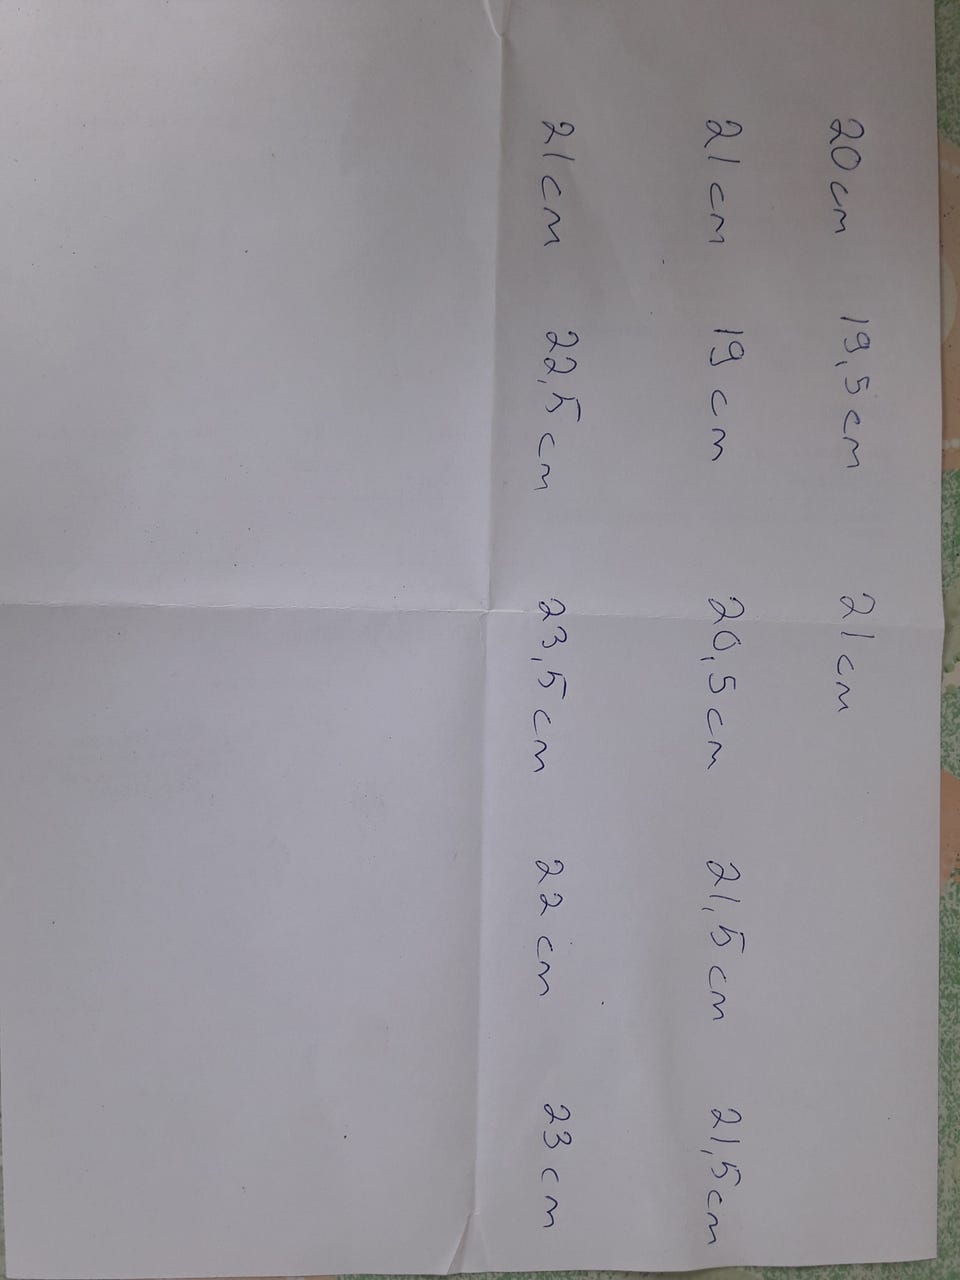 20 cm 19,5 cm 21 cm
21 cm 19 cm 20,5 cm 21,5 cm 21,5 cm
21 cm 22,5 cm 23,5 cm 22 cm 23 cm